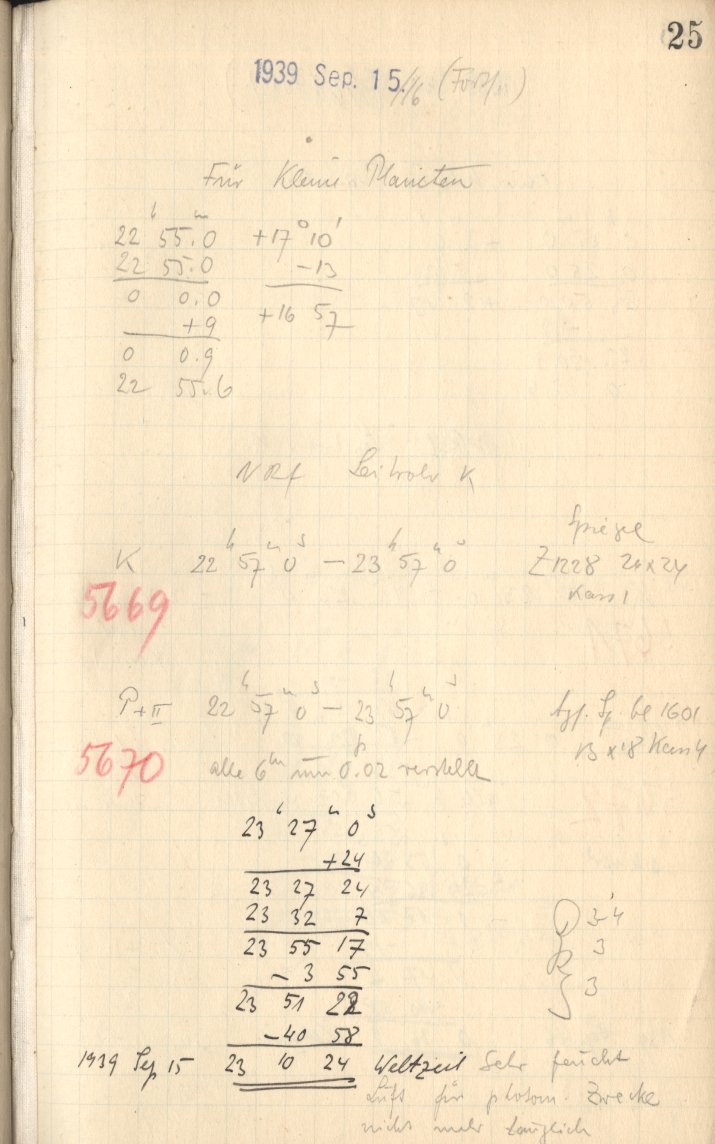 25
1939 Sep. 15./16 (Forts.)
Für Kleine Planeten
22ʰ 55ᵐ.0 +17° 10'
22 55.0 -13
0 0.0
+9 +16 57
0 0.9
22 55.6
Leitrohr K
Spiegel
K 22ʰ 57ᵐ 0ˢ — 23ʰ 57ᵐ 0ˢ Z1228 24x24
Kass 1
5669
P+II 22ʰ 57ᵐ 0ˢ — 23ʰ 57ᵐ 0ˢ 1601
13x18 Kass 4
5670 alle 6ᵐ um 0.02 verstellt
23ʰ 27ᵐ 0ˢ
+24
23 27 24
23 32 7 3-4
23 55 17 3
- 3 55 3
23 51 22
-40 58
1939 Sep 15 23 10 24 Weltzeit Sehr feucht
Luft für photom. Zwecke
nicht mehr tauglich